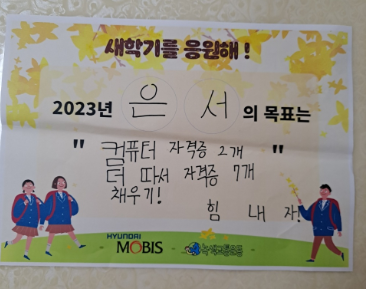 새학기를 응원해!
2023년 은 서 의 목표는
" 컴퓨터 자격증 2개 "
더 따서 자격증 7개
채우기!
힘 내 자!
HYUNDAI
MOBIS